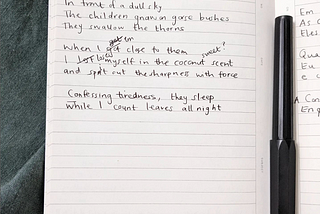 In front of a dull sky
The children gnaw on gorse bushes
They swallow the thorns
When I get close to them
sweet?
I myself in the coconut scent
and spit out the sharpness with force
Confessing tiredness, they sleep
while I count leaves all night
Em
As
Eles
Qua
Eu
e c
A Con
Enq